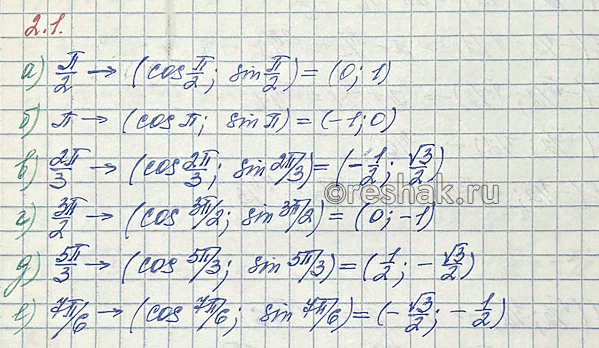 2.1.
а) π/2 → (cos π/2; sin π/2) = (0; 1)
б) π → (cos π; sin π) = (-1; 0)
в) 2π/3 → (cos 2π/3; sin 2π/3) = (-1/2; √3/2)
г) 3π/2 → (cos 3π/2; sin 3π/2) = (0; -1)
д) 5π/3 → (cos 5π/3; sin 5π/3) = (1/2; -√3/2)
е) 7π/6 → (cos 7π/6; sin 7π/6) = (-√3/2; -1/2)
reshak.ru